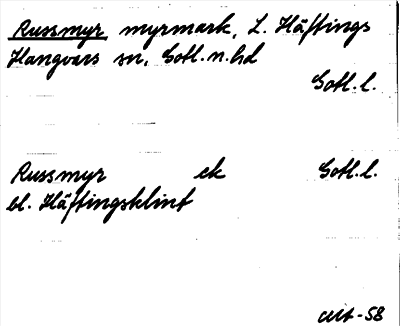 Russmyr myrmark, L. Häftings
Hangvars sn, Gotl. n. hd
Gotl. l.
Russmyr ek Gotl. l.
bl. Häftingsklint
-58